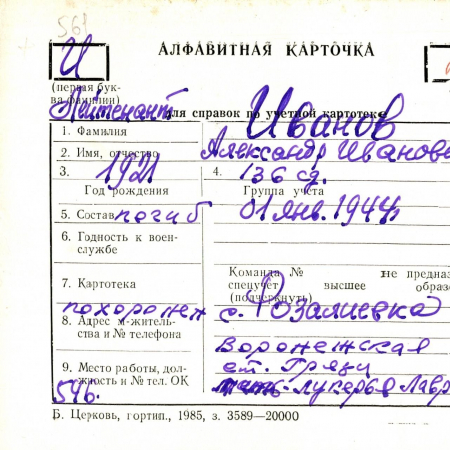 561
АЛФАВИТНАЯ КАРТОЧКА
И
(первая бук-
ва фамилии)
Лейтенант
для справок по учетной картотеке
1. Фамилия Иванов
2. Имя, отчество Александр Иванови
3. 1921 4. 136 сд.
Год рождения Группа учета
5. Состав погиб 01 янв. 1944г
6. Годность к воен-
службе
Команда № не предназ
7. Картотека спецучет высшее образо
(подчеркнуть)
похоронен с. Розалиевка
8. Адрес м-житель-
ства и № телефона
Воронежская
9. Место работы, дол- ст. Грязи
жность и № тел. ОК Лукерья Лавр
546.
Б. Церковь, гортип., 1985, з. 3589—20000